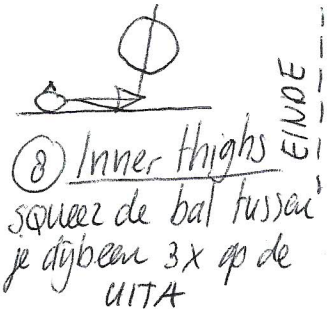 8 Inner thighs
squeez de bal tussen
je dijbeen 3x op de
UITA
EINDE